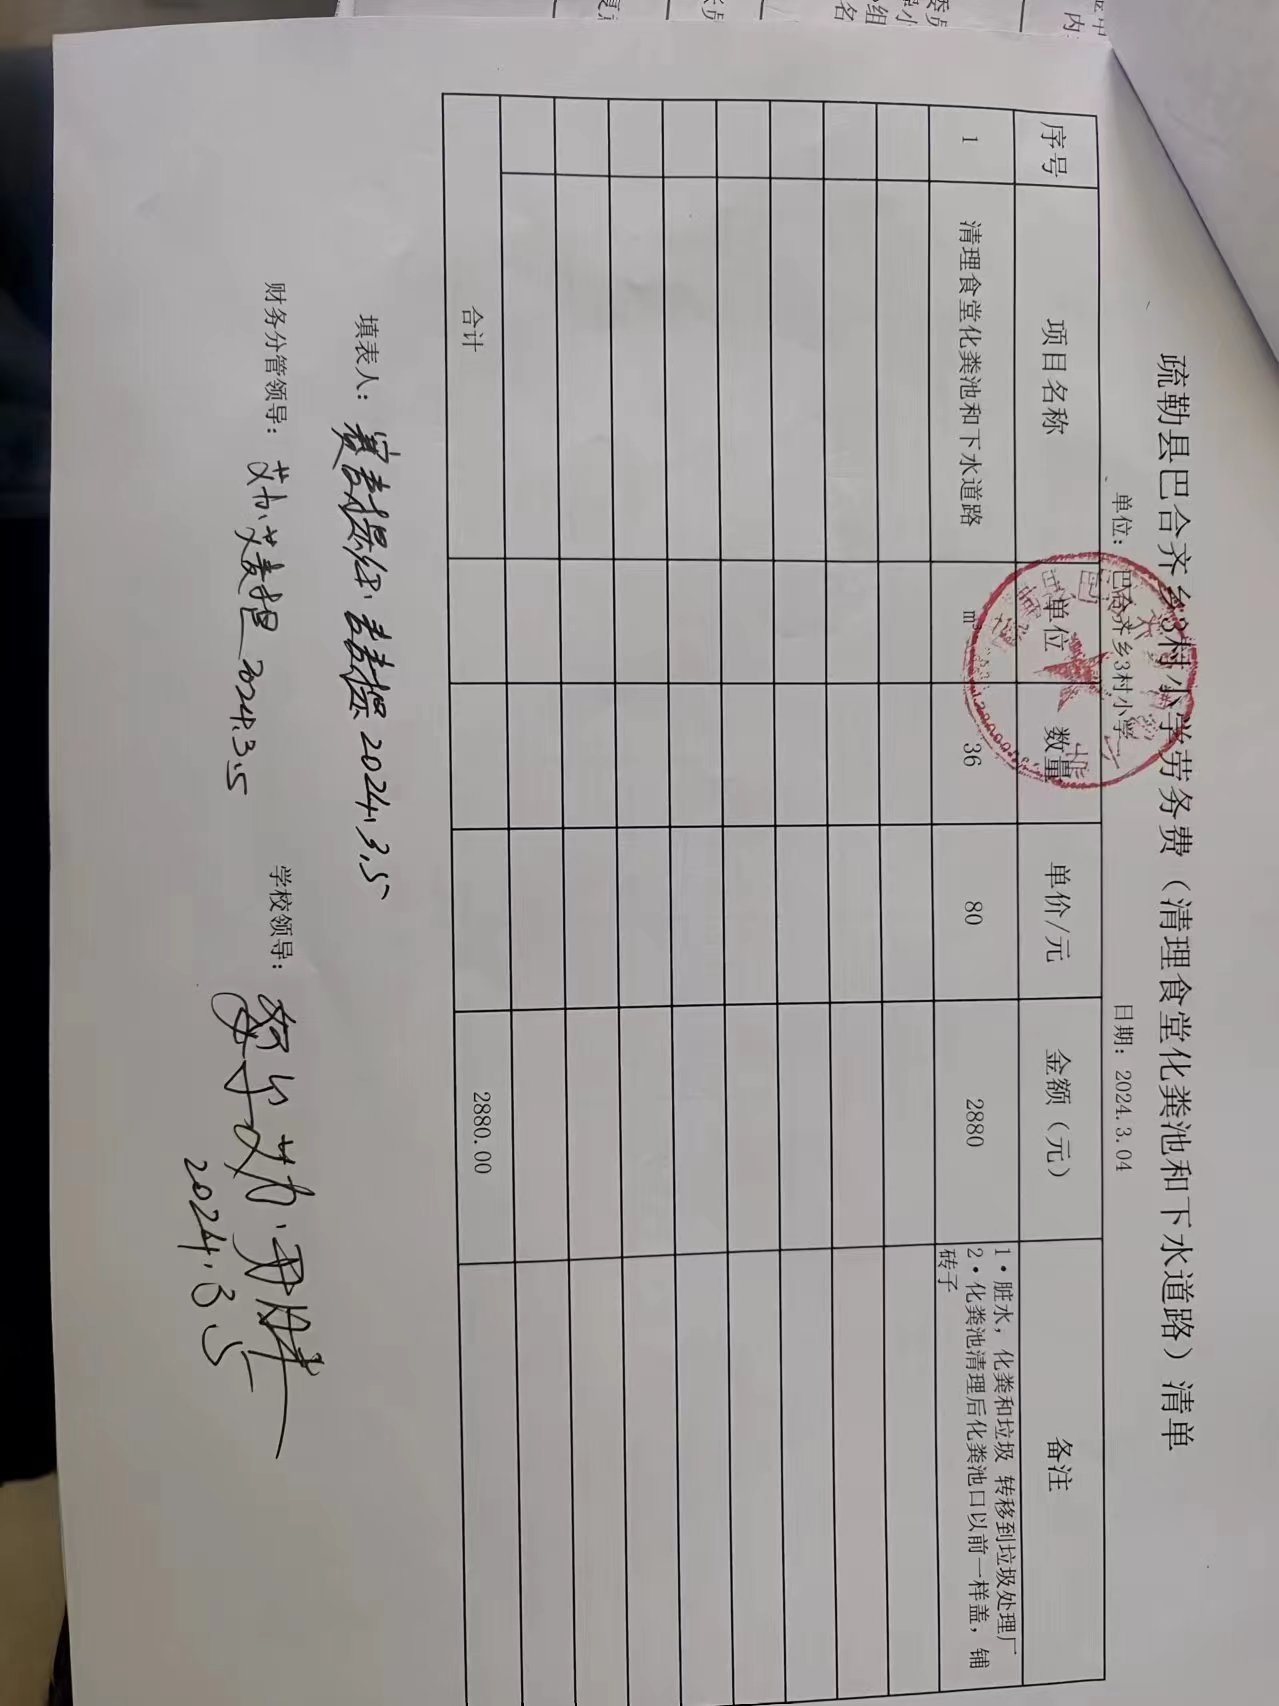 疏勒县巴合齐乡3村小学劳务费（清理食堂化粪池和下水道路）清单
单位：巴合齐乡3村小学 日期：2024.3.04
序号 项目名称 单位 数量 单价/元 金额（元） 备注
1 清理食堂化粪池和下水道路 m 36 80 2880 1·脏水，化粪和垃圾 转移到垃圾处理厂
2·化粪池清理后化粪池口以前一样盖，铺
砖子
合计 2880.00
填表人： 2024.3.5
财务分管领导： 2024.3.5 学校领导：
2024.3.5